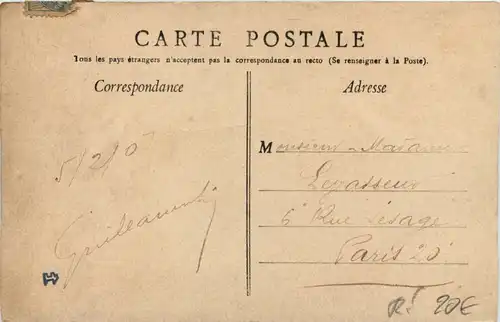 CARTE POSTALE
Tous les pays étrangers n'acceptent pas la correspondance au recto (Se renseigner à la Poste).
Correspondance
Adresse
5/2/0
Monsieur Madame
Levasseur
6 Rue Lesage
Paris 20
R! 20€